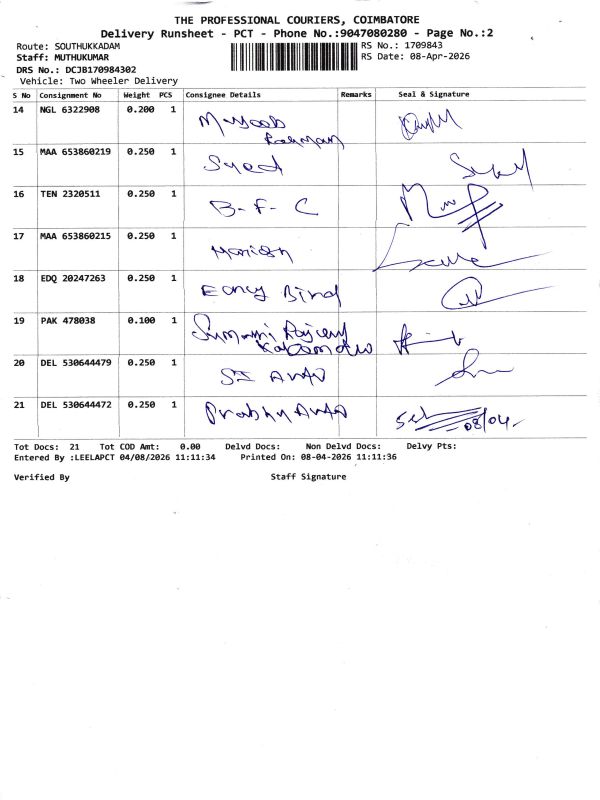 THE PROFESSIONAL COURIERS, COIMBATORE
Delivery Runsheet - PCT - Phone No.:9047080280 - Page No.:2
Route: SOUTHUKKADAM RS No.: 1709843
Staff: MUTHUKUMAR RS Date: 08-Apr-2026
DRS No.: DCJB170984302
Vehicle: Two Wheeler Delivery
S No Consignment No Weight PCS Consignee Details Remarks Seal & Signature
14 NGL 6322908 0.200 1
Rahman
15 MAA 653860219 0.250 1 Syed
16 TEN 2320511 0.250 1 B-F-C
17 MAA 653860215 0.250 1
18 EDQ 20247263 0.250 1
19 PAK 478038 0.100 1
20 DEL 530644479 0.250 1 Auto
21 DEL 530644472 0.250 1 Prabhu Auto 08/04
Tot Docs: 21 Tot COD Amt: 0.00 Delvd Docs: Non Delvd Docs: Delvy Pts:
Entered By :LEELAPCT 04/08/2026 11:11:34 Printed On: 08-04-2026 11:11:36
Verified By Staff Signature